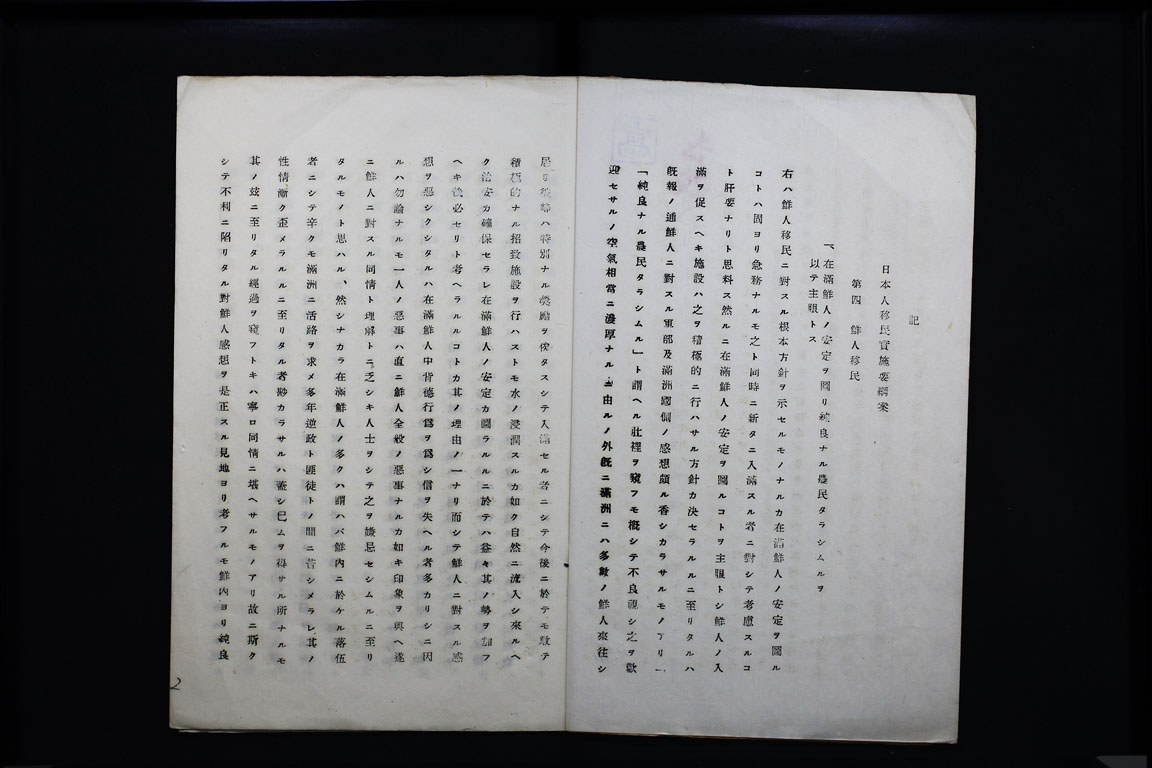 記
日本人移民實施要綱案
第四　鮮人移民
一、在滿鮮人ノ安定ヲ圖リ純良ナル農民タラシムルヲ
以テ主眼トス
右ハ鮮人移民ニ對スル根本方針ヲ示セルモノナルカ在滿鮮人ノ安定ヲ圖ル
コトハ固ヨリ急務ナルモ之ト同時ニ新タニ入滿スル者ニ對シテ考慮スルコ
ト肝要ナリト思料ス然ルニ在滿鮮人ノ安定ヲ圖ルコトヲ主眼トシ鮮人ノ入
滿ヲ促スヘキ施設ハ之ヲ積極的ニ行ハサル方針カ決セラルルニ至リタルハ
既報ノ通鮮人ニ對スル軍部及滿洲國側ノ感想頗ル香シカラサルモノアリ一
「純良ナル農民タラシムル」ト謂ヘル肚裡ヲ窺フモ概シテ不良視シ之ヲ歡
迎セサルノ空氣相當ニ濃厚ナルニ由ルノ外既ニ滿洲ニハ多數ノ鮮人來往シ
居リ彼等ハ特別ナル獎勵ヲ俟タスシテ入滿セル者ニシテ今後ニ於テモ敢テ
積極的ナル招致施設ヲ行ハストモ水ノ浸潤スルカ如ク自然ニ流入シ來ルヘ
ク治安カ確保セラレ在滿鮮人ノ安定カ圖ラルルニ於テハ益々其ノ勢ヲ加フ
ヘキ後必セリト考ヘラルルコトカ其ノ理由ノ一ナリ而シテ鮮人ニ對スル感
想ヲ惡シクシタルハ在滿鮮人中背德行爲ヲ爲シ信ヲ失ヘル者多カリシニ因
ルハ勿論ナルモ一人ノ惡事ハ直ニ鮮人全般ノ惡事ナルカ如キ印象ヲ與ヘ遂
ニ鮮人ニ對スル同情ト理解トニ乏シキ人士ヲシテ之ヲ嫌忌セシムルニ至リ
タルモノト思ハル、然シナカラ在滿鮮人ノ多クハ謂ハバ鮮內ニ於ケル落伍
者ニシテ辛クモ滿洲ニ活路ヲ求メ多年逆政ト匪徒トノ間ニ苦シメラレ其ノ
性情漸ク歪メラルルニ至リタル者尠カラサルハ蓋シ已ムヲ得サル所ナルモ
其ノ玆ニ至リタル經過ヲ窺フトキハ寧ロ同情ニ堪ヘサルモノアリ故ニ斯ク
シテ不利ニ陷リタル對鮮人感想ヲ是正スル見地ヨリ考フルモ鮮內ヨリ純良
2